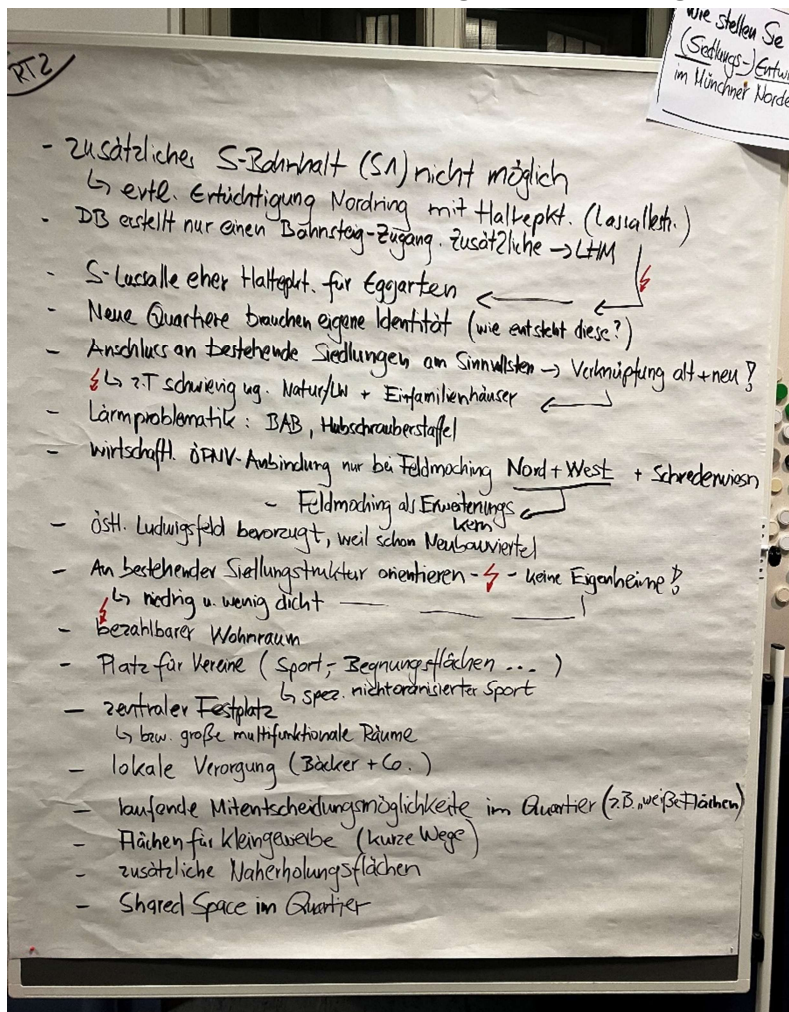 RT2
Wie stellen Sie
(Siedlungs-) Entwi
im Münchner Norde
- zusätzlicher S-Bahnhalt (S1) nicht möglich
↳ evtl. Ertüchtigung Nordring mit Haltepkt. (Lassallestr.)
- DB erstellt nur einen Bahnsteig-Zugang. Zusätzliche → LHM
- S-Lassalle eher Haltepkt. für Eggarten ←
- Neue Quartiere brauchen eigene Identität (wie entsteht diese?)
- Anschluss an bestehende Siedlungen am Sinnvollsten → Verknüpfung alt + neu!
↳ z.T schwierig wg. Natur/LW + Einfamilienhäuser ←
- Lärmproblematik: BAB, Hubschrauberstaffel
- wirtschaftl. ÖPNV-Anbindung nur bei Feldmoching Nord + West + Schrederwiesn
- Feldmoching als Erweiterungs
kern
- östl. Ludwigsfeld bevorzugt, weil schon Neubauviertel
- An bestehender Siedlungstruktur orientieren - - keine Eigenheime!
↳ niedrig u. wenig dicht
- bezahlbarer Wohnraum
- Platz für Vereine (Sport,- Begnungsflächen ... )
↳ spez. nichtoranisierter Sport
- zentraler Festplatz
↳ bzw. große multifunktionale Räume
- lokale Verorgung (Bäcker + Co.)
- laufende Mitentscheidungsmöglichkeite im Quartier (z.B. „weiße Flächen)
- Flächen für Kleingewerbe (kurze Wege)
- zusätzliche Naherholungsflächen
- Shared Space im Quartier